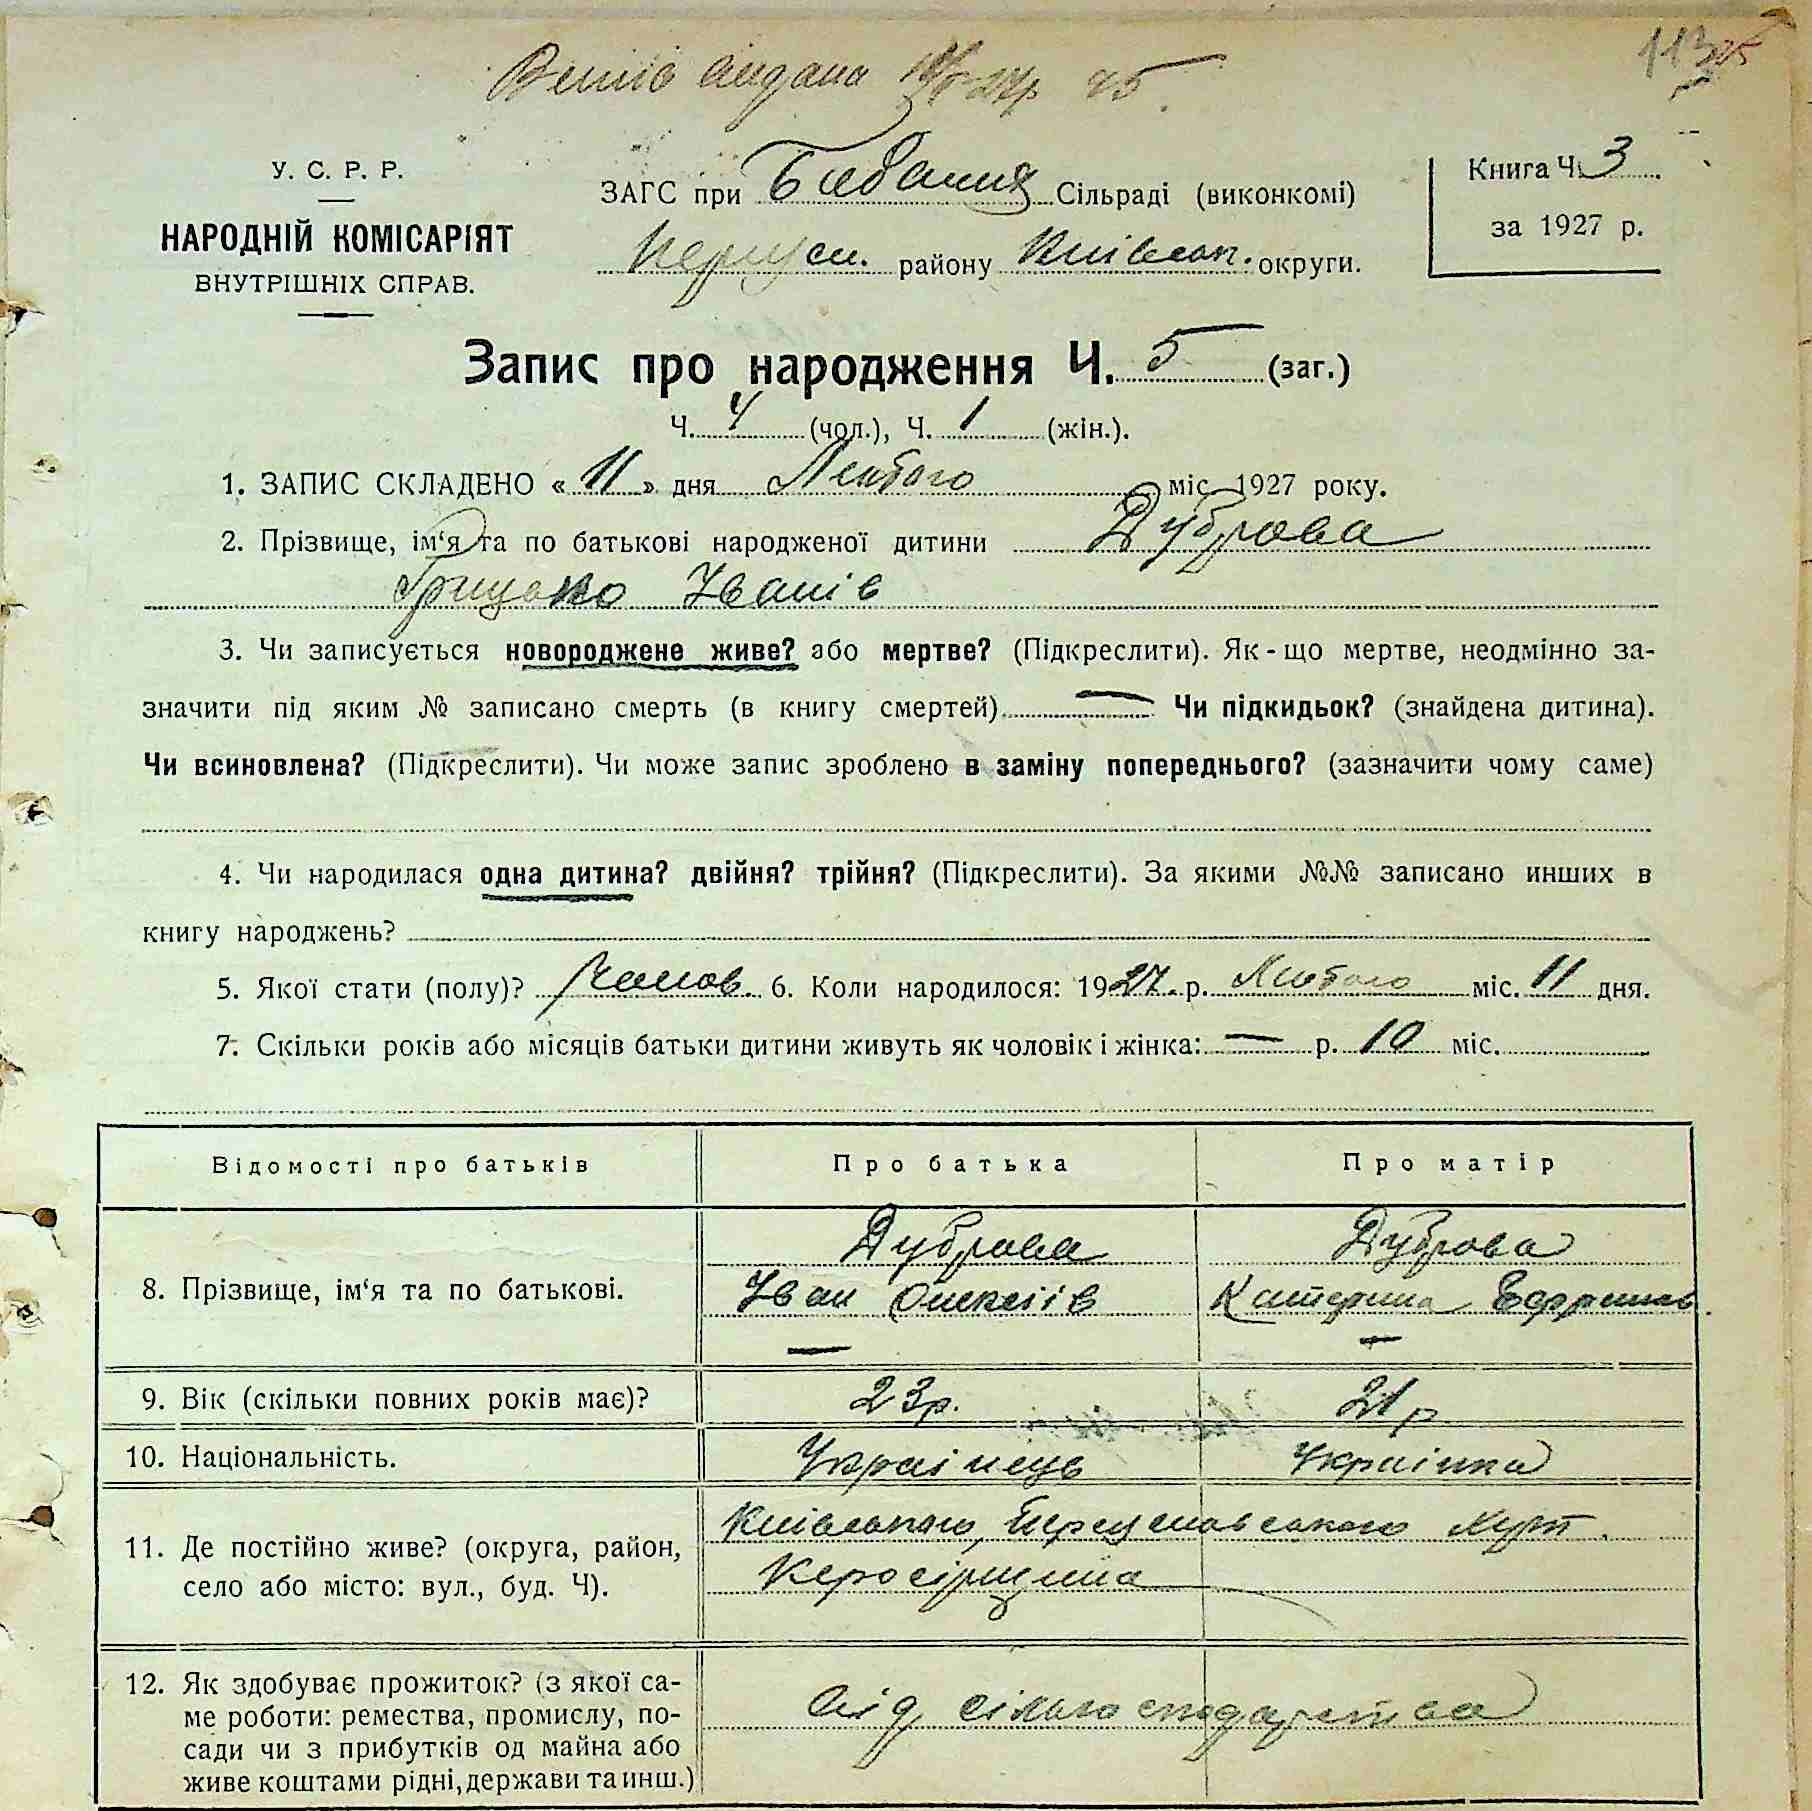 видана 45
113
У. С. Р. Р.
НАРОДНІЙ КОМІСАРІЯТ
ВНУТРІШНІХ СПРАВ.
ЗАГС при Сільраді (виконкомі)
району Київськ. округи.
Книга Ч. 3
за 1927 р.
Запис про народження Ч. 5 (заг.)
Ч. 4 (чол.), Ч. 1 (жін.).
1. ЗАПИС СКЛАДЕНО « 11 » дня Лютого міс. 1927 року.
2. Прізвище, ім‘я та по батькові народженої дитини Дуброва
Грицько Іванів
3. Чи записується новороджене живе? або мертве? (Підкреслити). Як-що мертве, неодмінно за-
значити під яким № записано смерть (в книгу смертей) — Чи підкидьок? (знайдена дитина).
Чи всиновлена? (Підкреслити). Чи може запис зроблено в заміну попереднього? (зазначити чому саме)
4. Чи народилася одна дитина? двійня? трійня? (Підкреслити). За якими №№ записано инших в
книгу народжень?
5. Якої стати (полу)? 6. Коли народилося: 1927 р. Лютого міс. 11 дня.
7. Скільки років або місяців батьки дитини живуть як чоловік і жінка: — р. 10 міс.
Відомості про батьків Про батька Про матір
8. Прізвище, ім‘я та по батькові.
Дуброва
Іван Олексіїв
—
Дуброва
Катерина
—
9. Вік (скільки повних років має)? 23р. 21р
10. Національність. Українець Українка
11. Де постійно живе? (округа, район,
село або місто: вул., буд. Ч).
Київського, Хут.
12. Як здобуває прожиток? (з якої са-
ме роботи: ремества, промислу, по-
сади чи з прибутків од майна або
живе коштами рідні, держави та инш.)
від сільгосподарства